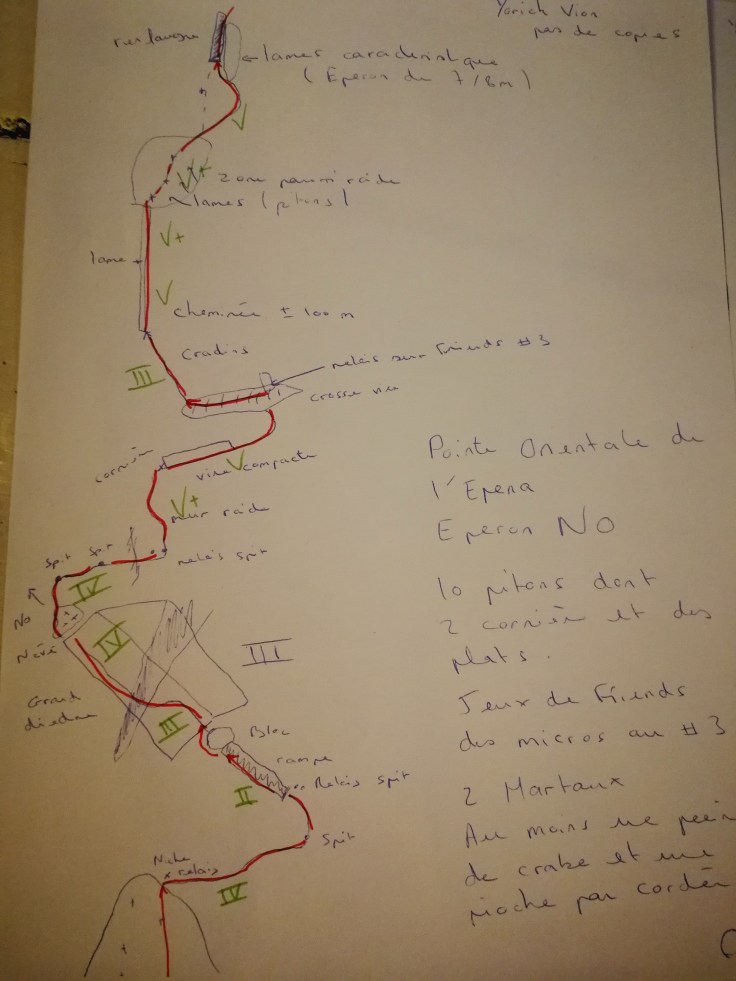 Yorick Vion
pas de copies
lames caractéristique
(Eperon du 7/8m)
V
V+
zone pourri raide
lames (pitons)
V+
lame
V
cheminée ± 100 m
III
relais sur Friends #3
vire
cornière
vire V compacte
V+
mur raide
Spit
Spit
relais spit
IV
NO
Névé
IV
III
Grand
dièdre
III
Bloc
rampe
Relais spit
II
Spit
Niche
relais
IV
Pointe Orientale de
l'Epena
Eperon NO
10 pitons dont
2 cornière et des
plats.
Jeux de Friends
des micros au #3
2 Martaux
Au moins une
de crabe et une
pioche par cordée